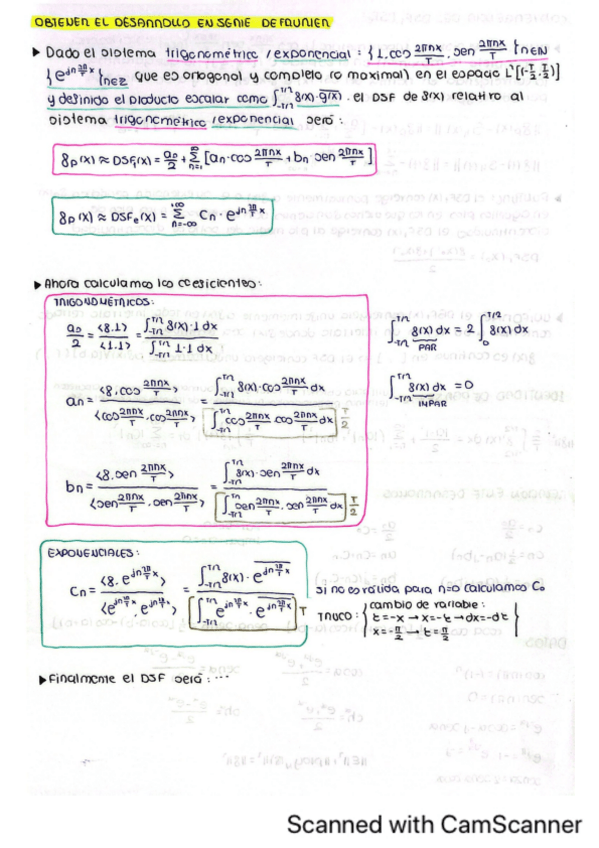 OBTENER EL DESARROLLO EN SERIE DE FOURIER
▸ Dado el sistema trigonométrico / exponencial : {1, cos 2πnx/T, sen 2πnx/T}n∈ℕ
{e^{jn 2π/T x}}n∈Z que es ortogonal y completo (o maximal) en el espacio L²[(-T/2, T/2)]
y definido el producto escalar como ∫_{-T/2}^{T/2} f(x)·g(x) , el DSF de f(x) relativo al
sistema trigonométrico / exponencial será :
fp(x) ≈ DSFt(x) = a0/2 + Σ_{n=1}^{∞} [an·cos 2πnx/T + bn·sen 2πnx/T]
fp(x) ≈ DSFe(x) = Σ_{n=-∞}^{+∞} Cn · e^{jn 2π/T x}
▸ Ahora calculamos los coeficientes:
TRIGONOMÉTRICOS:
a0/2 = <f,1>/<1,1> = ∫_{-T/2}^{T/2} f(x)·1 dx / ∫_{-T/2}^{T/2} 1·1 dx
∫_{-T/2}^{T/2} f(x) dx = 2 ∫_{0}^{T/2} f(x) dx
PAR
an = <f, cos 2πnx/T> / <cos 2πnx/T, cos 2πnx/T> = ∫_{-T/2}^{T/2} f(x)·cos 2πnx/T dx / ∫_{-T/2}^{T/2} cos 2πnx/T · cos 2πnx/T dx T/2
∫_{-T/2}^{T/2} f(x) dx = 0
IMPAR
bn = <f, sen 2πnx/T> / <sen 2πnx/T, sen 2πnx/T> = ∫_{-T/2}^{T/2} f(x)·sen 2πnx/T dx / ∫_{-T/2}^{T/2} sen 2πnx/T · sen 2πnx/T dx T/2
EXPONENCIALES:
Cn = <f, e^{jn 2π/T x}> / <e^{jn 2π/T x}, e^{jn 2π/T x}> = ∫_{-T/2}^{T/2} f(x)· e^{jn 2π/T x} / ∫_{-T/2}^{T/2} e^{jn 2π/T x} · e^{jn 2π/T x} T
si no es válida para n=0 calculamos C0
TRUCO: {cambio de variable:
t=-x → x=-t → dx=-dt
x=-π/2 → t=π/2}
▸ Finalmente el DSF será: ...
Scanned with CamScanner